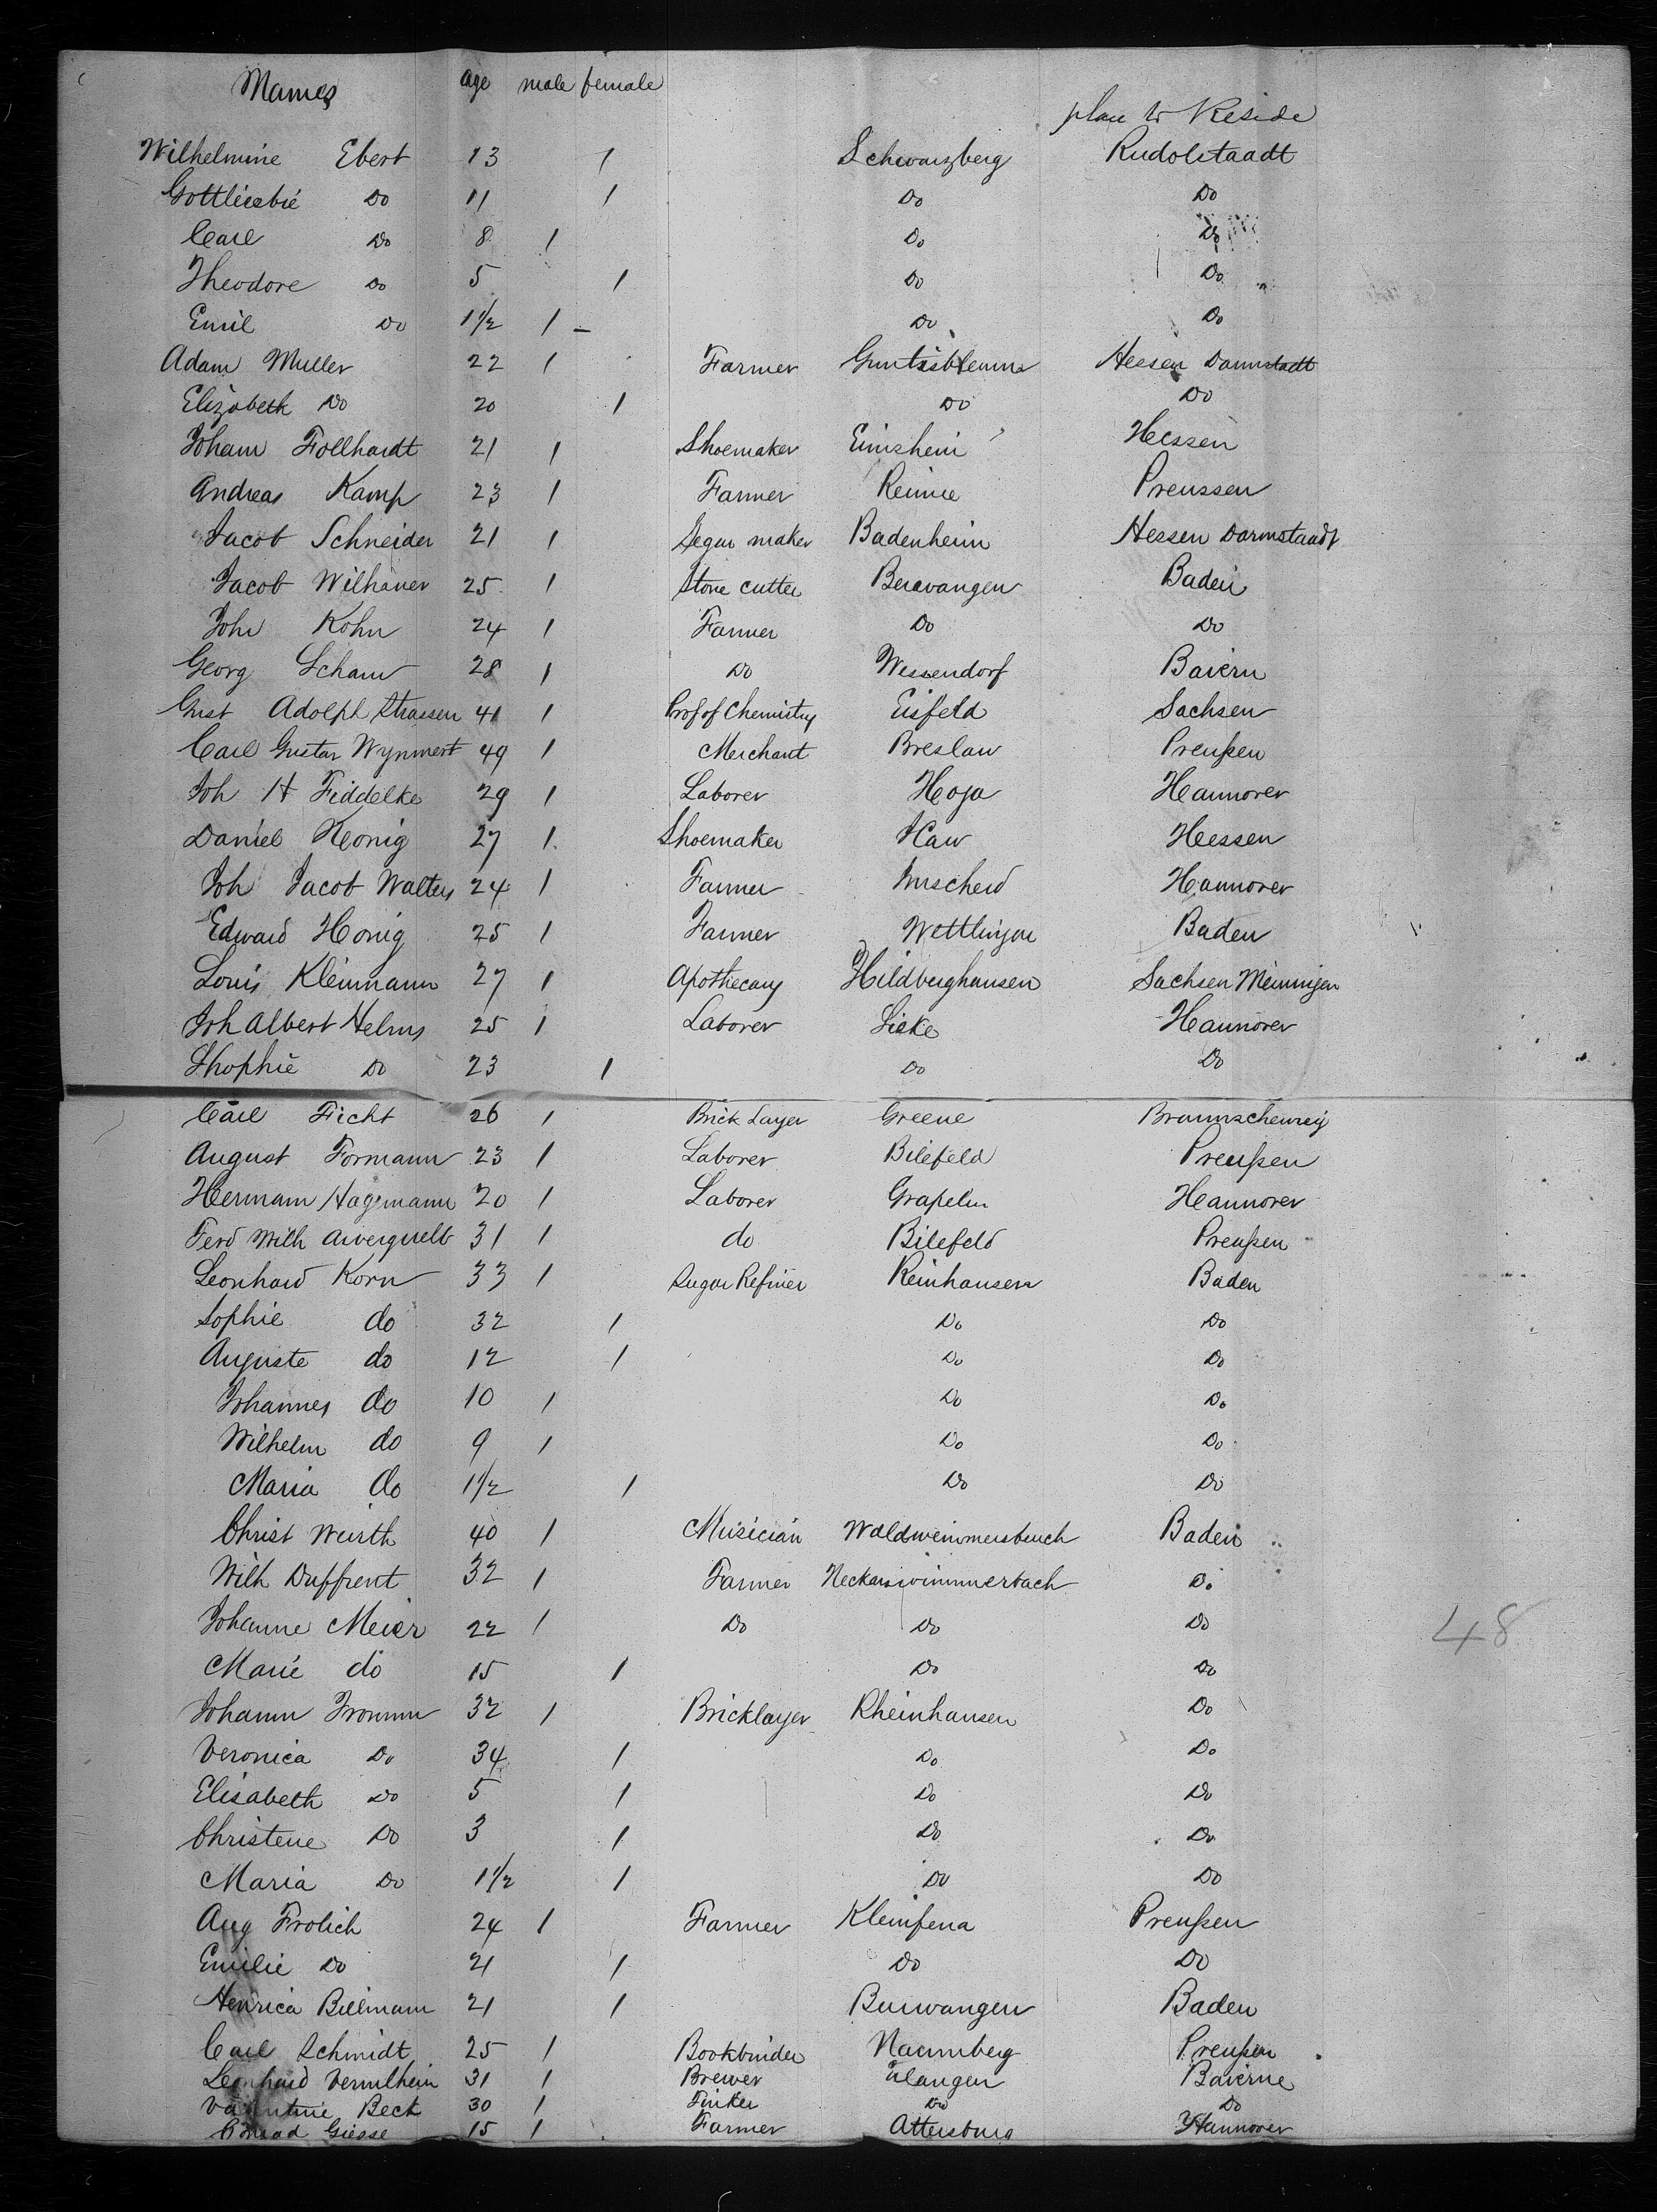 Names age male female
place to Reside
Wilhelmine Ebert 13 1 Schwarzberg Rudolstaadt
Gottliebie Do 11 1 Do Do
Carl Do 8 1 Do Do
Theodore Do 5 1 Do Do
Emil Do 1 1/2 1 – Do Do
Adam Muller 22 1 Farmer Hessen Darmstadt
Elizabeth Do 20 1 Do Do
Johann Follhardt 21 1 Shoemaker Einsheim Hessen
Andreas Kamp 23 1 Farmer Preussen
Jacob Schneider 21 1 Segar maker Badenheim Hessen Darmstaadt
Jacob Wilhauer 25 1 Stone cutter Berwangen Baden
Joh Kohn 24 1 Farmer Do Do
Georg Scham 28 1 Do Wessendorf Baiern
Gust Adolph Strassen 41 1 Prof of Chemistry Eisfeld Sachsen
Carl Gustav Wynmert 49 1 Merchant Breslau Preußen
Joh H Fiddelke 29 1 Laborer Hoja Hannover
Daniel Konig 27 1 Shoemaker Haw Hessen
Joh Jacob Walters 24 1 Farmer Hannover
Edward Honig 25 1 Farmer Wettlingen Baden
Louis Kleinmann 27 1 Apothecary Hildberghausen Sachsen Meiningen
Joh Albert Helms 25 1 Laborer Lieke Hannover
Shophie Do 23 1 Do Do
Carl Ficht 26 1 Brick Layer Greene Braunscheweig
August Formann 23 1 Laborer Bilefeld Preußen
Hermann Hagemann 20 1 Laborer Grapeln Hannover
Ferd Wilh 31 1 do Bilefeld Preußen
Leonhard Korn 33 1 Sugar Refiner Reinhausen Baden
Sophie do 32 1 Do Do
Auguste do 12 1 Do Do
Johannes do 10 1 Do Do
Wilhelm do 9 1 Do Do
Maria do 1 1/2 1 Do Do
Christ Wurth 40 1 Musician Waldwimmersbach Baden
Wilh Duffrent 32 1 Farmer Neckarswimmersbach Do
Johanne Meier 22 1 Do Do Do
48
Marie do 15 1 Do Do
Johann Fromm 32 1 Bricklayer Rheinhausen Do
Veronica Do 34 1 Do Do
Elisabeth Do 5 1 Do Do
Christene Do 3 1 Do Do
Maria Do 1 1/2 1 Do Do
Aug Frolich 24 1 Farmer Kleinfena Preußen
Emilie Do 21 1 Do Do
Henrica Billmann 21 1 Burwangen Baden
Carl Schmidt 25 1 Bookbinder Naumberg Preußen
Leonhard 31 1 Brewer Erlangen Baierne
Valentine Beck 30 1 Do Do
Conrad Giesse 15 1 Farmer Attersburg Hannover